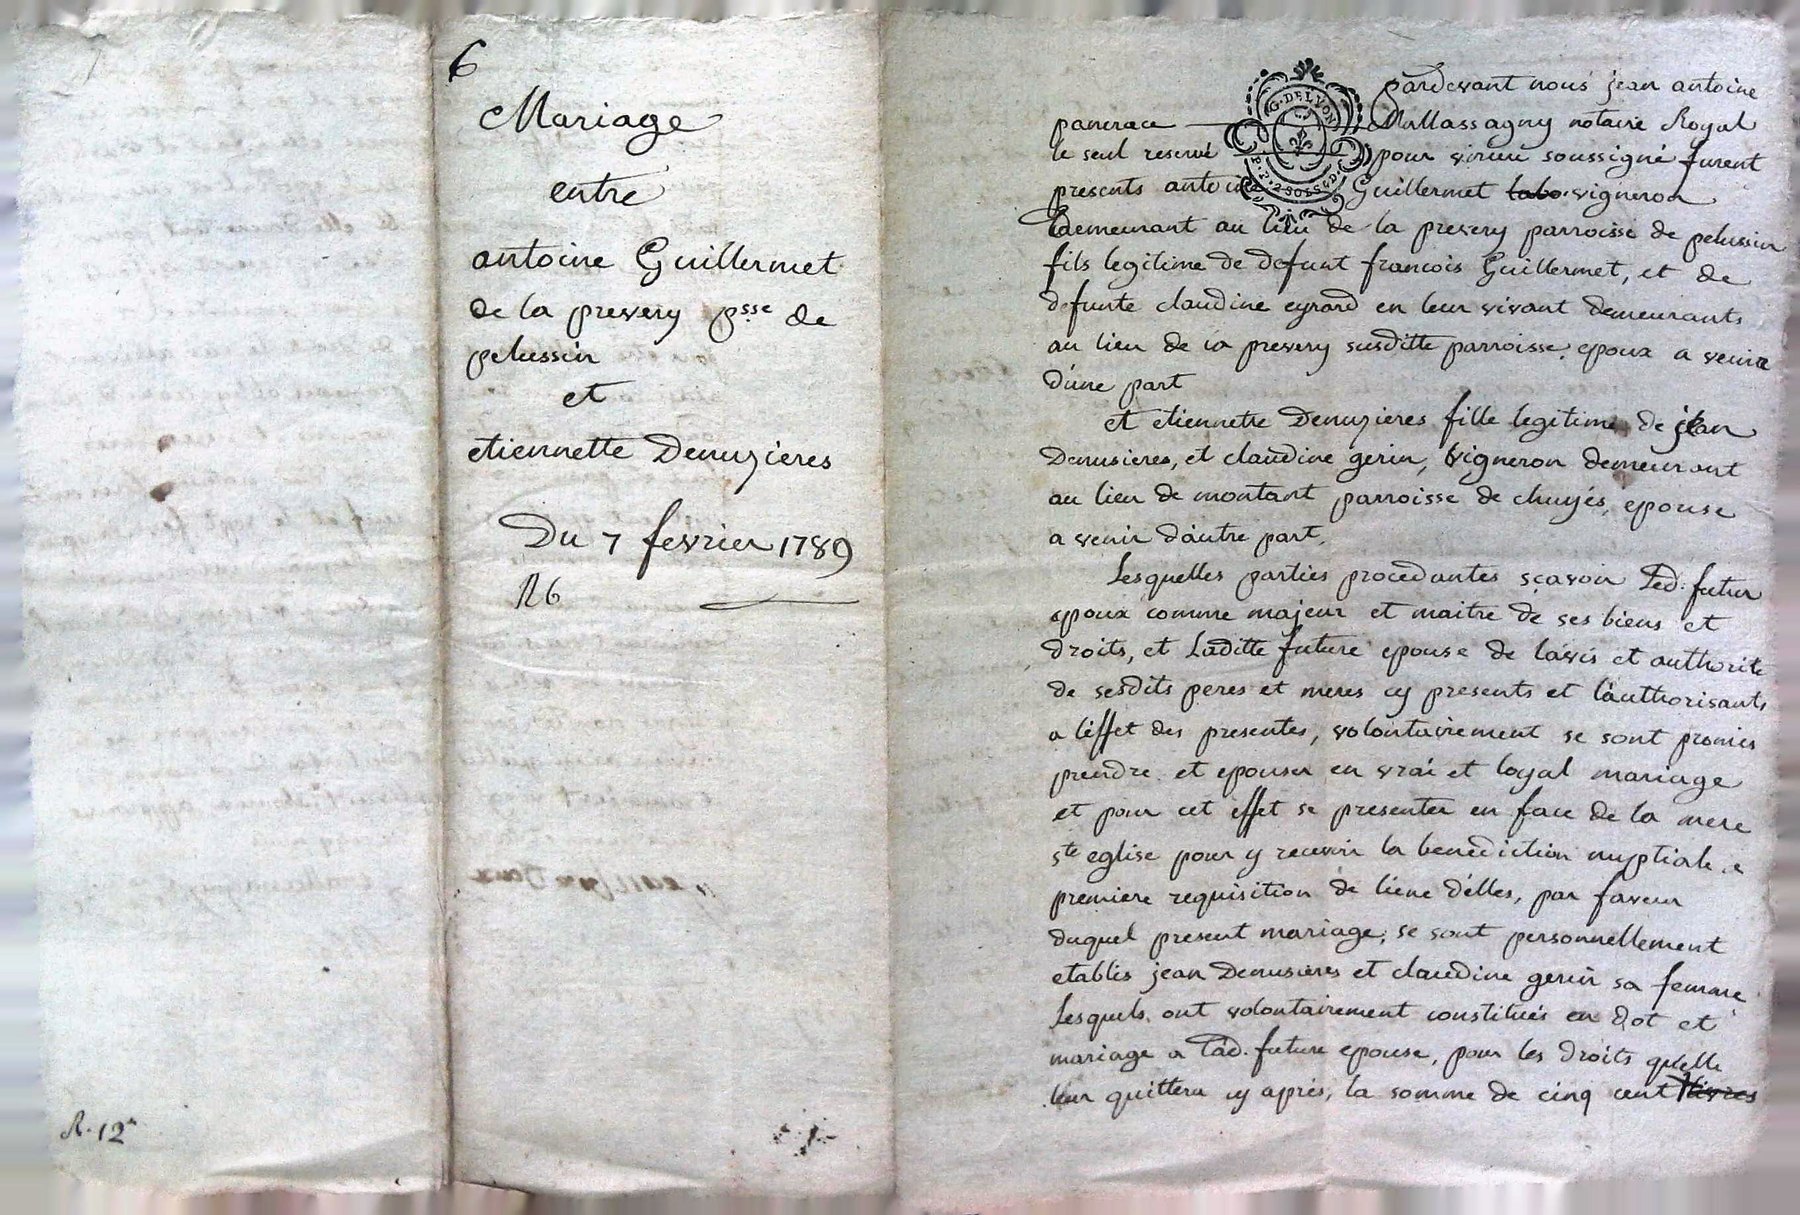 6
Mariage
entre
antoine Guillermet
de la prevery psse de
pelussin
et
etiennette Denuzieres
Du 7 fevrier 1789
R6
R. 12
G. DE LYON
2 SOLS 4 D.
pardevant nous jean antoine
pancrace Mallassagny notaire Royal
le seul reservé pour virieu soussigné furent
presents antoine Guillermet labo. vigneron
demeurant au lieu de la prevery parroisse de pelussin
fils legitime de defunt francois Guillermet, et de
defunte claudine eyrard en leur vivant demeurants
au lieu de la prevery susditte parroisse, epoux a venir
d'une part
et etiennette Denuzieres fille legitime de jean
Denusieres, et claudine gerin, vigneron demeurant
au lieu de montant parroisse de chuyés, epouse
a venir d'autre part.
Lesquelles parties procedantes sçavoir Led. futur
epoux comme majeur et maitre de ses biens et
droits, et Laditte future epouse de l'avis et authorité
de sesdits peres et meres cy presents et l'authorisants
a l'effet des presentes, volontairement se sont promis
prendre et epouser en vrai et loyal mariage
et pour cet effet se presenter en face de la mere
ste eglise pour y recevoir la benediction nuptiale a
premiere requisition de l'une d'elles, par faveur
duquel present mariage, se sont personnellement
etablis jean Denusieres et claudine gerin sa femme
Lesquels ont volontairement constitués en dot et
mariage a Lad. future epouse, pour les droits qu'elle
leur quittera cy aprés, la somme de cinq cent livres